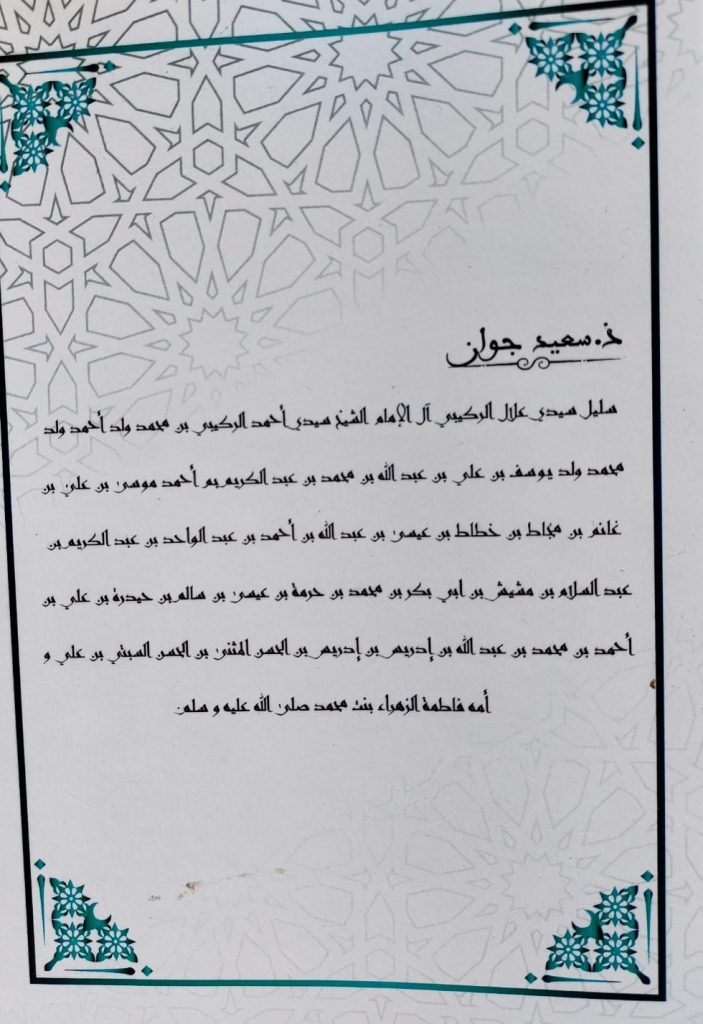 ذ.سعيد جوان
سليل سيدي علال الركيبي آل الإمام الشيخ سيدي أحمد الركيبي بن محمد ولد أحمد ولد
محمد ولد يوسف بن علي بن عبد الله بن محمد بن عبد الكريم بم أحمد موسى بن علي بن
غانم بن مجاط بن خطاط بن عيسى بن عبد الله بن أحمد بن عبد الواحد بن عبد الكريم بن
عبد السلام بن مشيش بن ابي بكر بن محمد بن حرمة بن عيسى بن سالم بن حيدرة بن علي بن
أحمد بن محمد بن عبد الله بن إدريس بن إدريس بن الحسن المثنى بن الحسن السبتي بن علي و
أمه فاطمة الزهراء بنت محمد صلى الله عليه و سلم